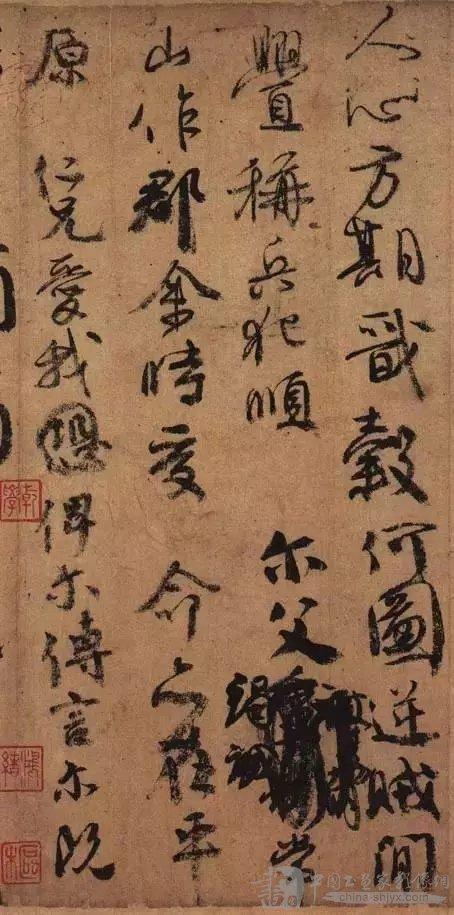 人心方期戩穀何圖逆賊間
舋稱兵犯順 尔父竭誠常
山作郡余時受 命亦在平
原 仁兄愛我俾尔傳言尔既
www.china-shjyx.com